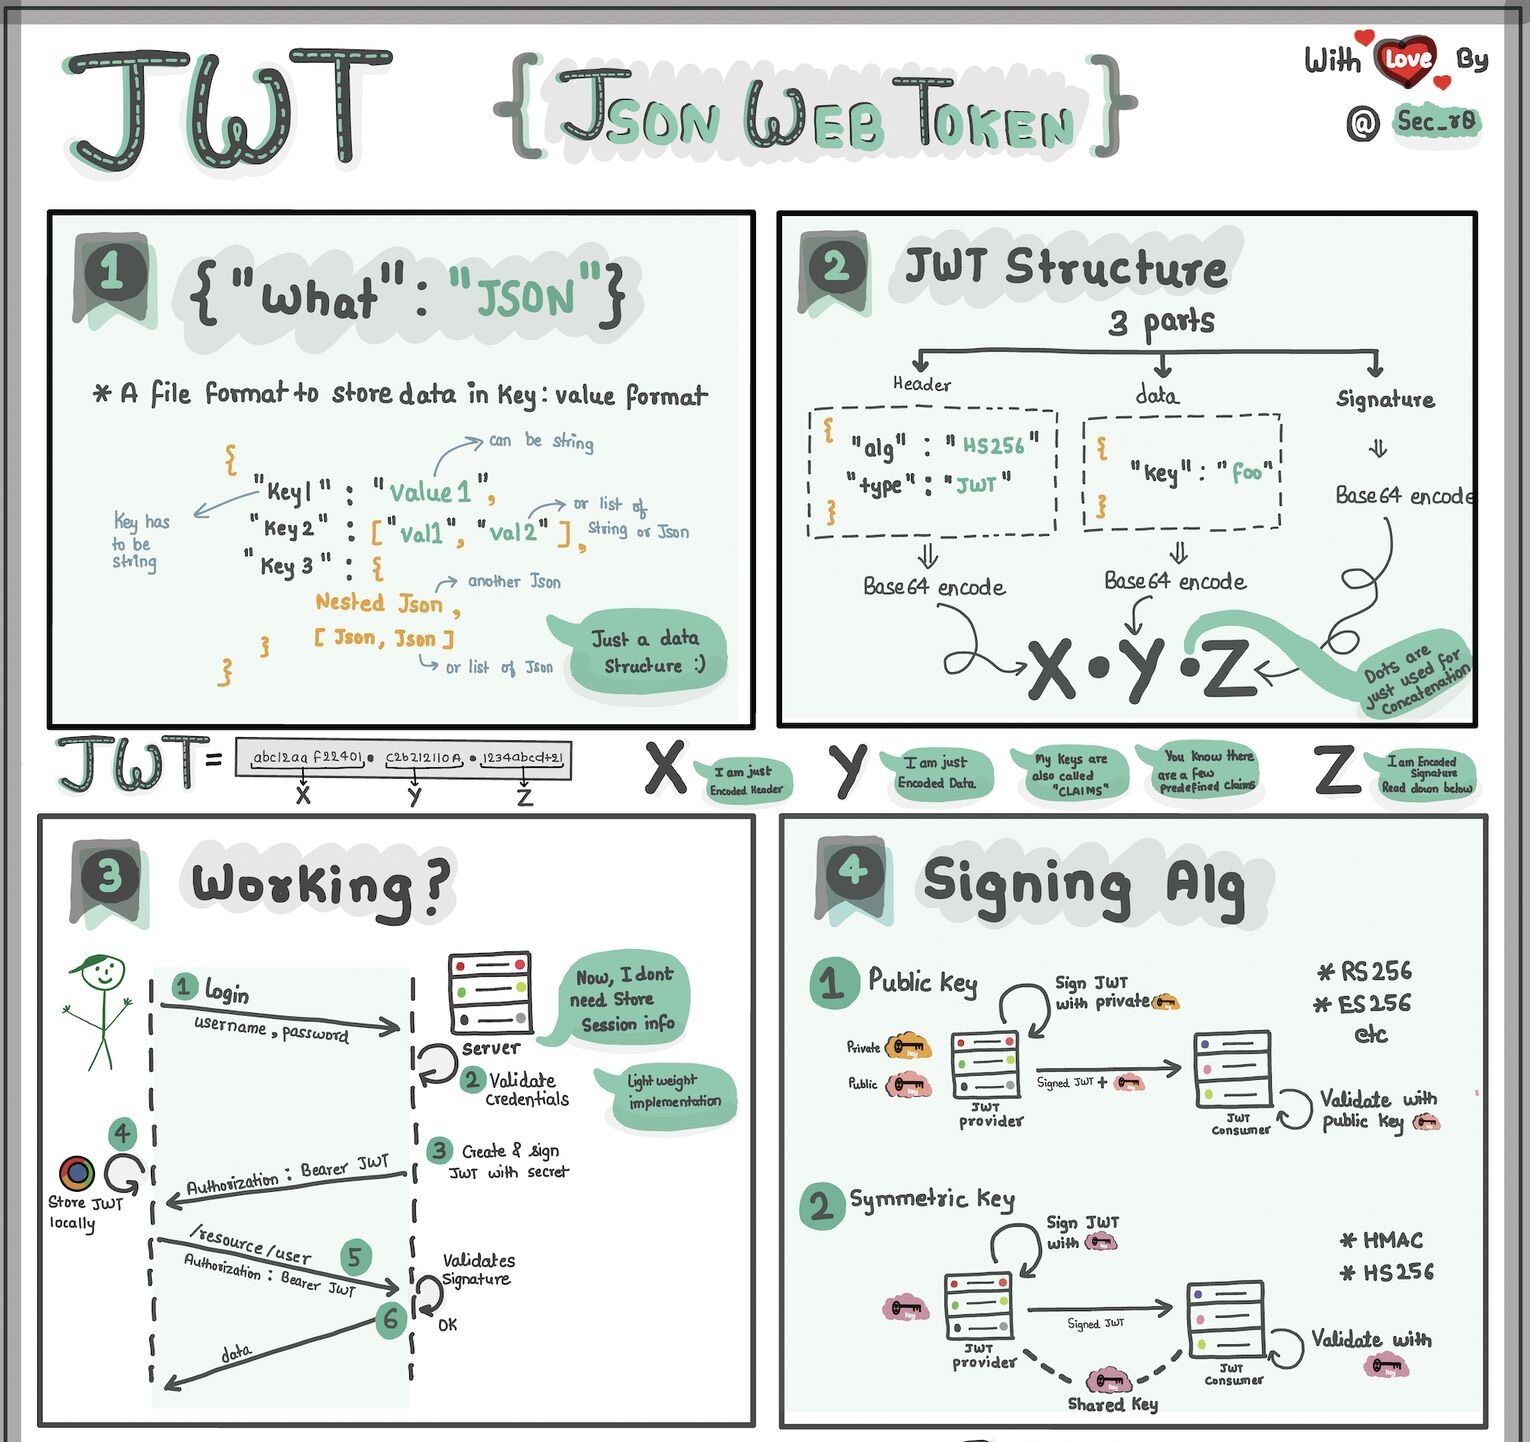 JWT
{ JSON WEB TOKEN }
With Love By
@ Sec_r0
1
{ "What" : "JSON" }
* A file format to store data in Key : value format
{
"Key1" : "Value1",
"Key2" : ["val1", "val2"],
"Key3" : {
Nested Json,
[ Json, Json ]
}
}
can be string
Key has
to be
string
or list of
String or Json
another Json
or list of Json
Just a data
Structure :)
2
JWT Structure
3 parts
Header
{
"alg" : "HS256"
"type" : "JWT"
}
Base64 encode
data
{
"key" : "foo"
}
Base64 encode
Signature
Base64 encode
X.Y.Z
Dots are
just used for
Concatenation
JWT = abc12aa f22401 . C2b212110A . 1234abcd+21
X Y Z
X
I am just
Encoded Header
Y
I am just
Encoded Data
My Keys are
also called
"CLAIMS"
You Know there
are a few
predefined claims
Z
I am Encoded
Signature
Read down below
3
Working?
1 login
username, password
Server
Now, I dont
need Store
Session info
2 Validate
Credentials
Light weight
implementation
3 Create & sign
JWT with secret
Authorization : Bearer JWT
4
Store JWT
locally
/resource/user
5
Authorization : Bearer JWT
Validates
Signature
OK
6
data
4
Signing Alg
1 Public Key
Sign JWT
with private
* RS256
* ES256
etc
Private
Public
JWT
provider
Signed JWT +
JWT
Consumer
Validate with
public Key
2 Symmetric Key
Sign JWT
with
* HMAC
* HS256
JWT
provider
Signed JWT
JWT
Consumer
Validate with
Shared Key